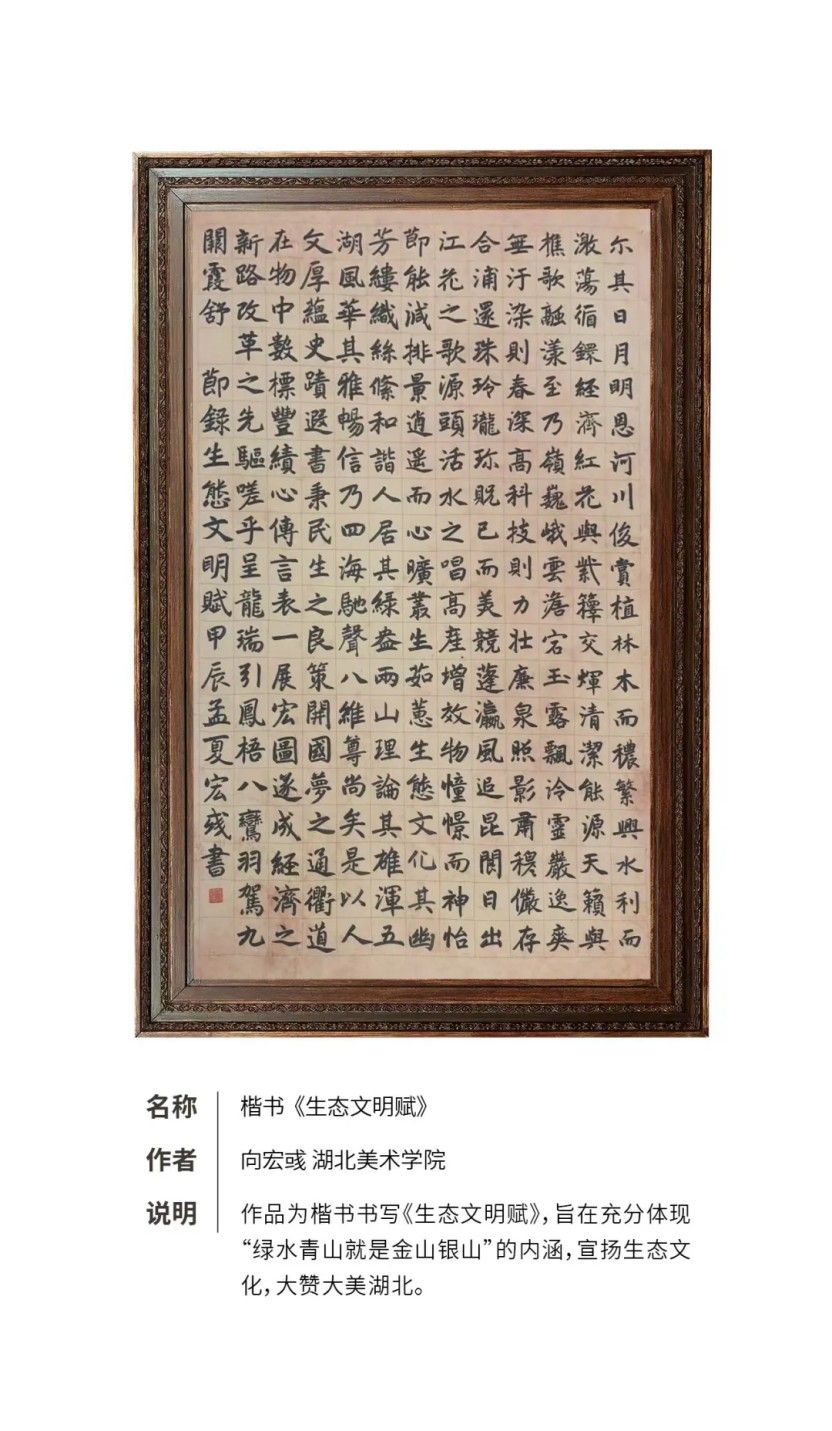 尔其日月明恩河川俊賞植林木而穠繁興水利而
激蕩循鐶經濟紅花與紫籜交煇清潔能源天籟與
樵歌融漾至乃嶺巍峨雲澹宕玉露飄泠靈巖逸爽
無汙染則春深高科技則力壯廉泉照影肅穆儼存
合浦還珠玲瓏珎貺已而美競蓬瀛風追昆閬日出
江花之歌源頭活水之唱高産增效物憧憬而神怡
節能減排景逍遥而心曠叢生茹蕙生態文化其幽
芳縷織絲絛和諧人居其緑盎兩山理論其雄渾五
湖風華其雅暢信乃四海馳聲八維尊尚矣是以人
文厚藴史蹟遐書秉民生之良策開國夢之通衢道
在物中數標豐績心傳言表一展宏圖遂成經濟之
新路改革之先驅嗟乎呈龍瑞引鳳梧八鸞羽駕九
關霞舒 節録生態文明賦甲辰孟夏宏彧書
名称 楷书《生态文明赋》
作者 向宏彧 湖北美术学院
说明 作品为楷书书写《生态文明赋》，旨在充分体现
“绿水青山就是金山银山”的内涵，宣扬生态文
化，大赞大美湖北。